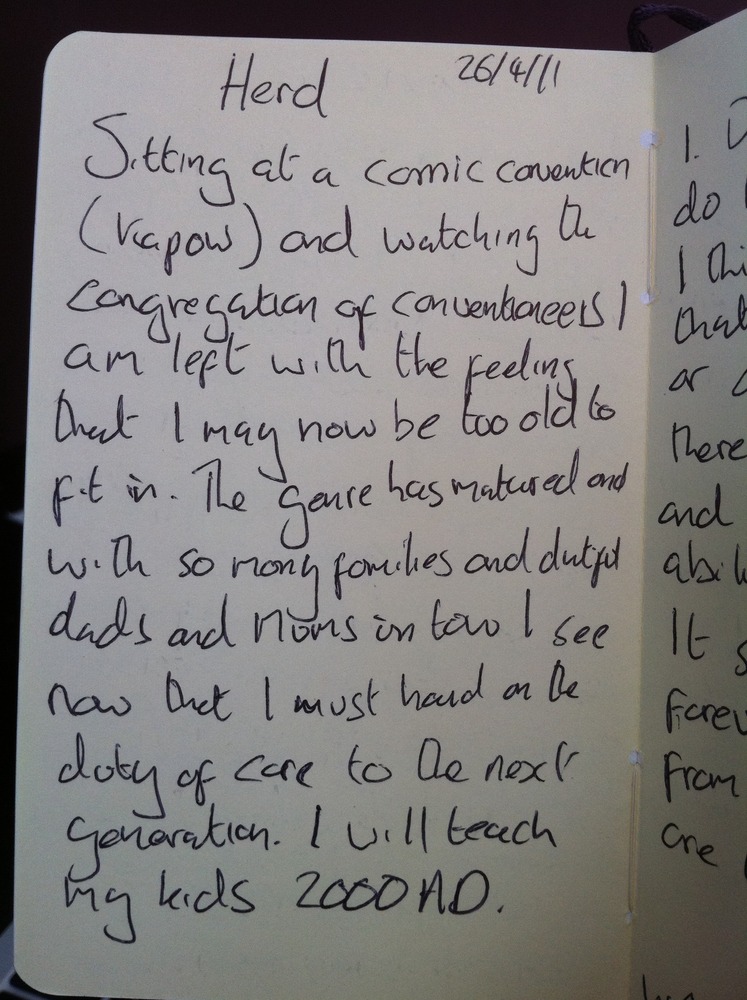 Herd 26/4/11
Sitting at a comic convention
(Kapow) and watching the
congregation of conventioneers I
am left with the feeling
that I may now be too old to
fit in. The genre has matured and
with so many families and dutiful
dads and mums in tow I see
now that I must hand on the
duty of care to the next
generation. I will teach
my kids 2000AD.
1.
do
I thi
that
or
there
and
abil
It s
forev
from
one